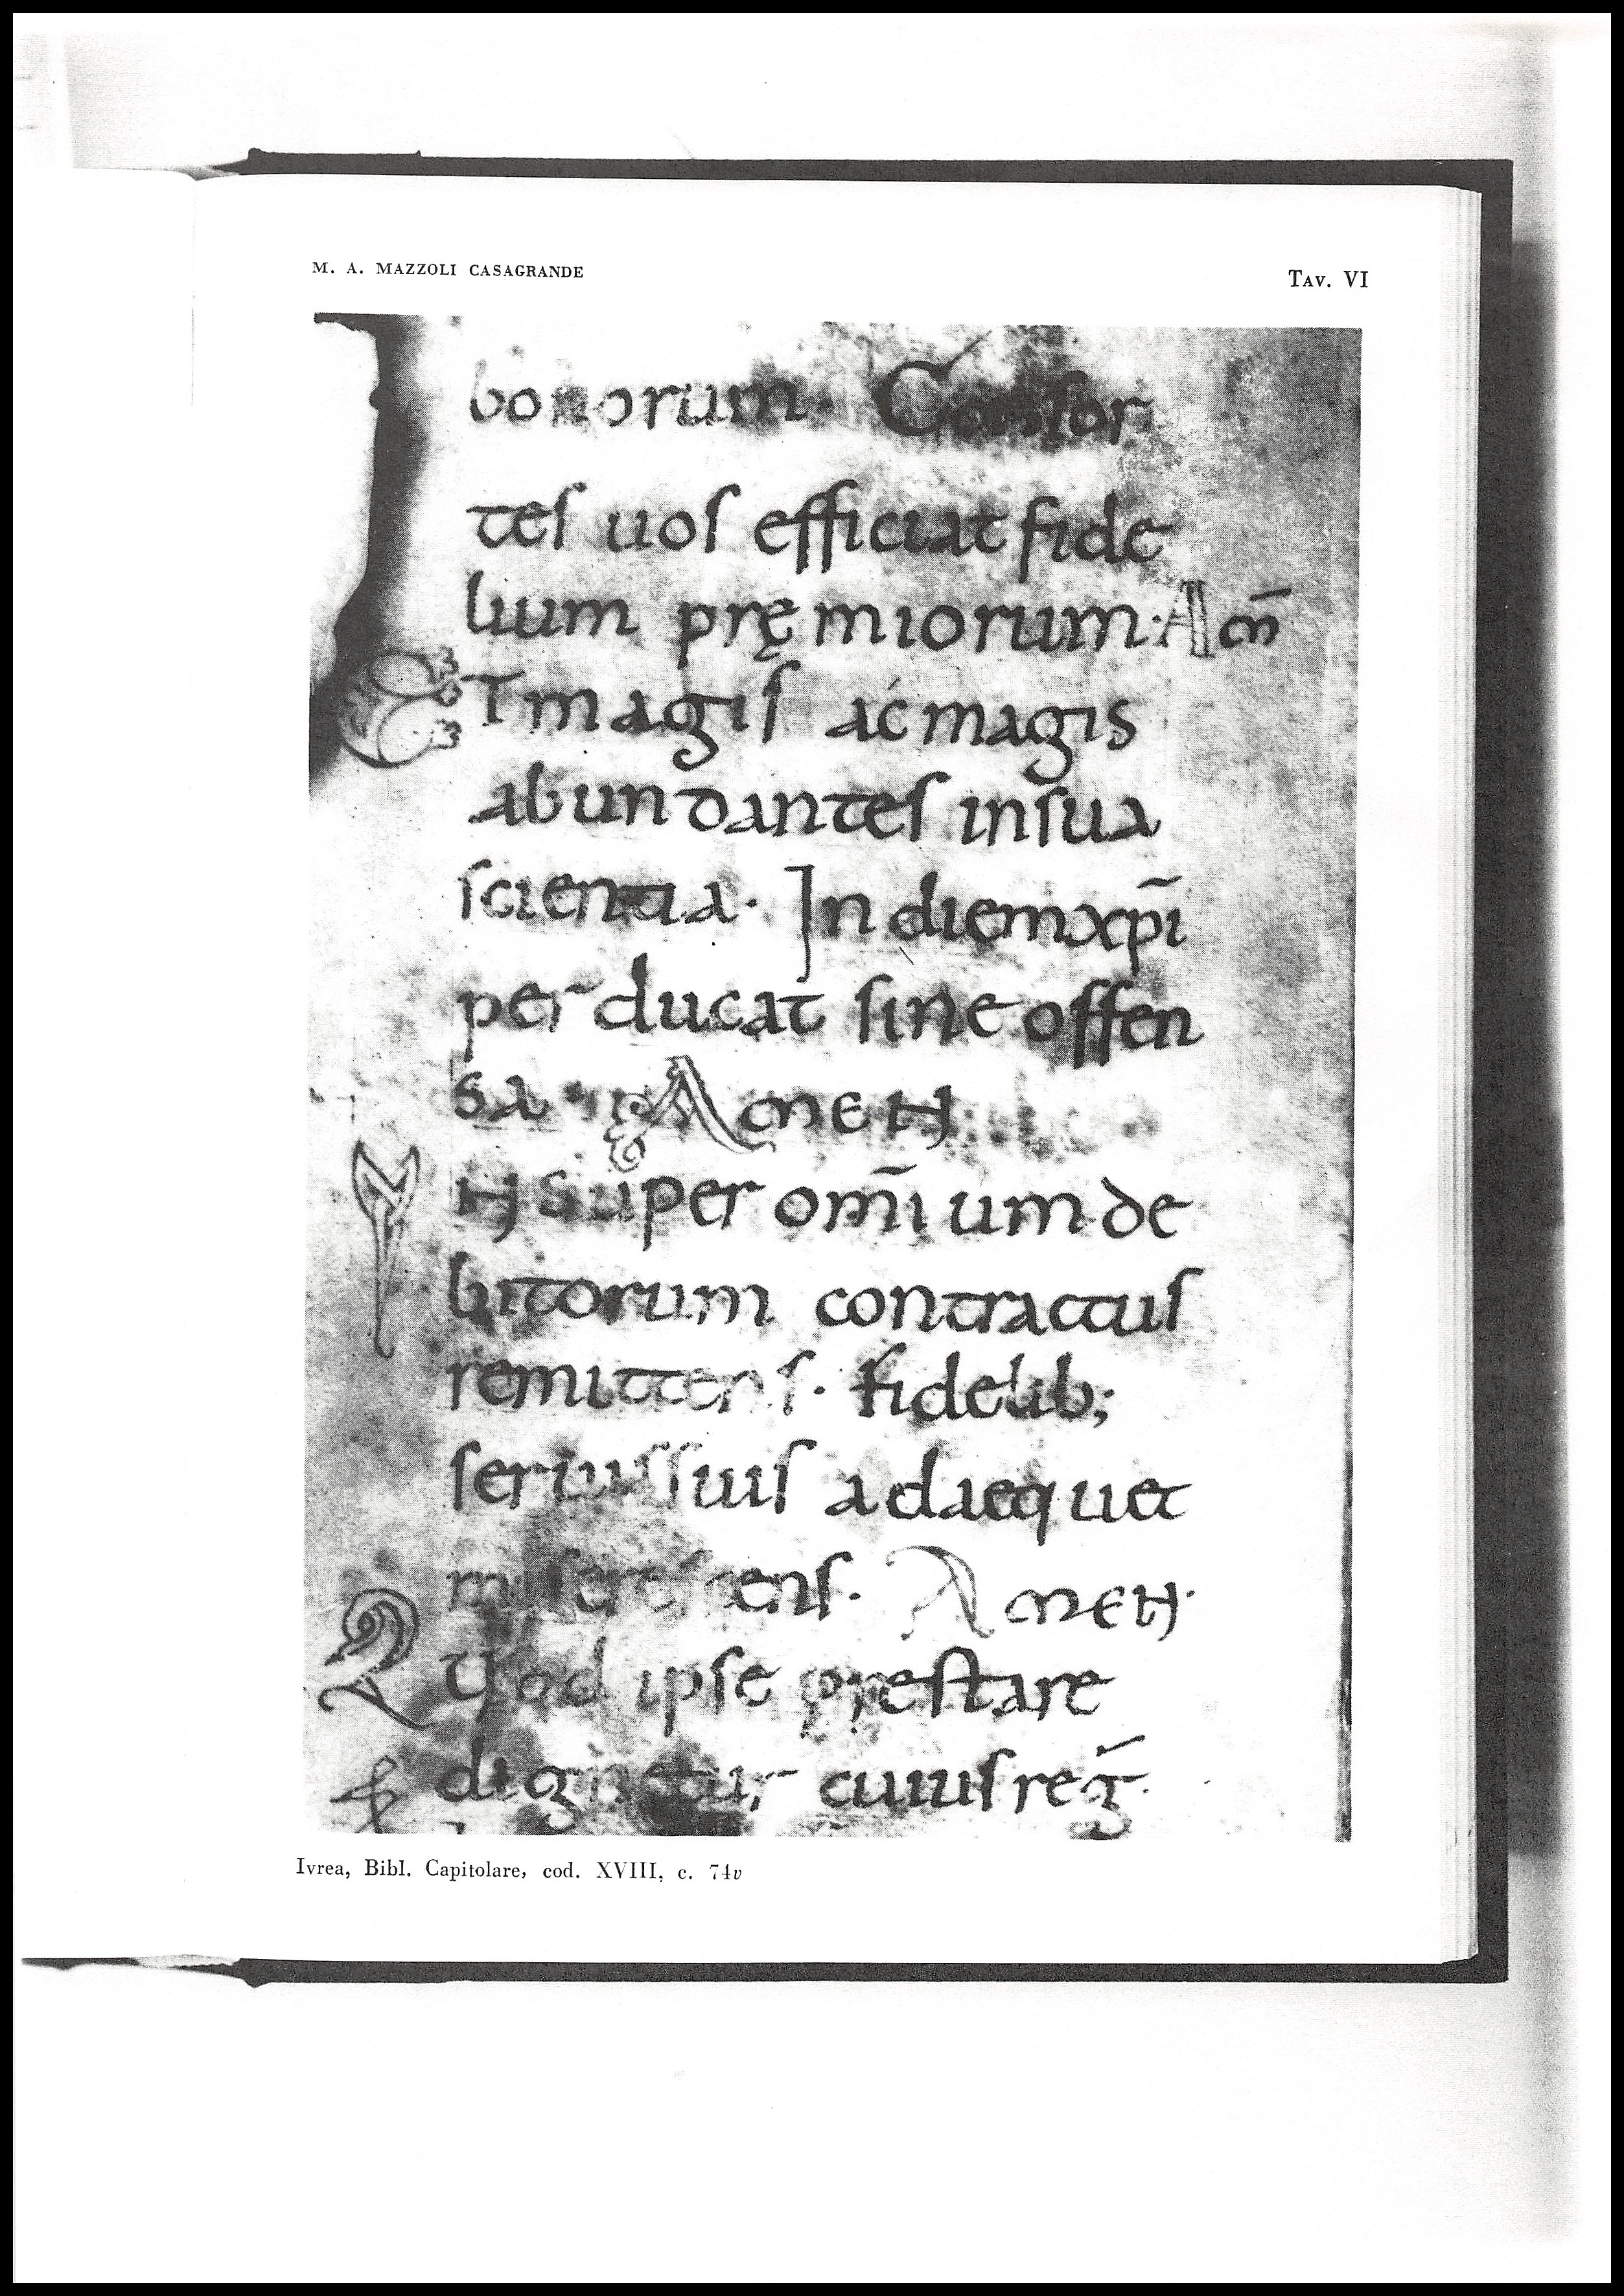 M. A. MAZZOLI CASAGRANDE
TAV. VI
bonorum· Consor
tes uos efficiat fide
lium pręmiorum· Am̄
ET magis ac magis
abundantes in sua
scientia· In diem xp̄i
perducat sine offen
sa· AMEN
YN super om̄ium de
bitorum contractus
remittens· fidelib;
seruis suis adaequet
ens· AMEN·
QUod ipse prestare
dignetur cuius reḡ·
Ivrea, Bibl. Capitolare, cod. XVIII, c. 74v